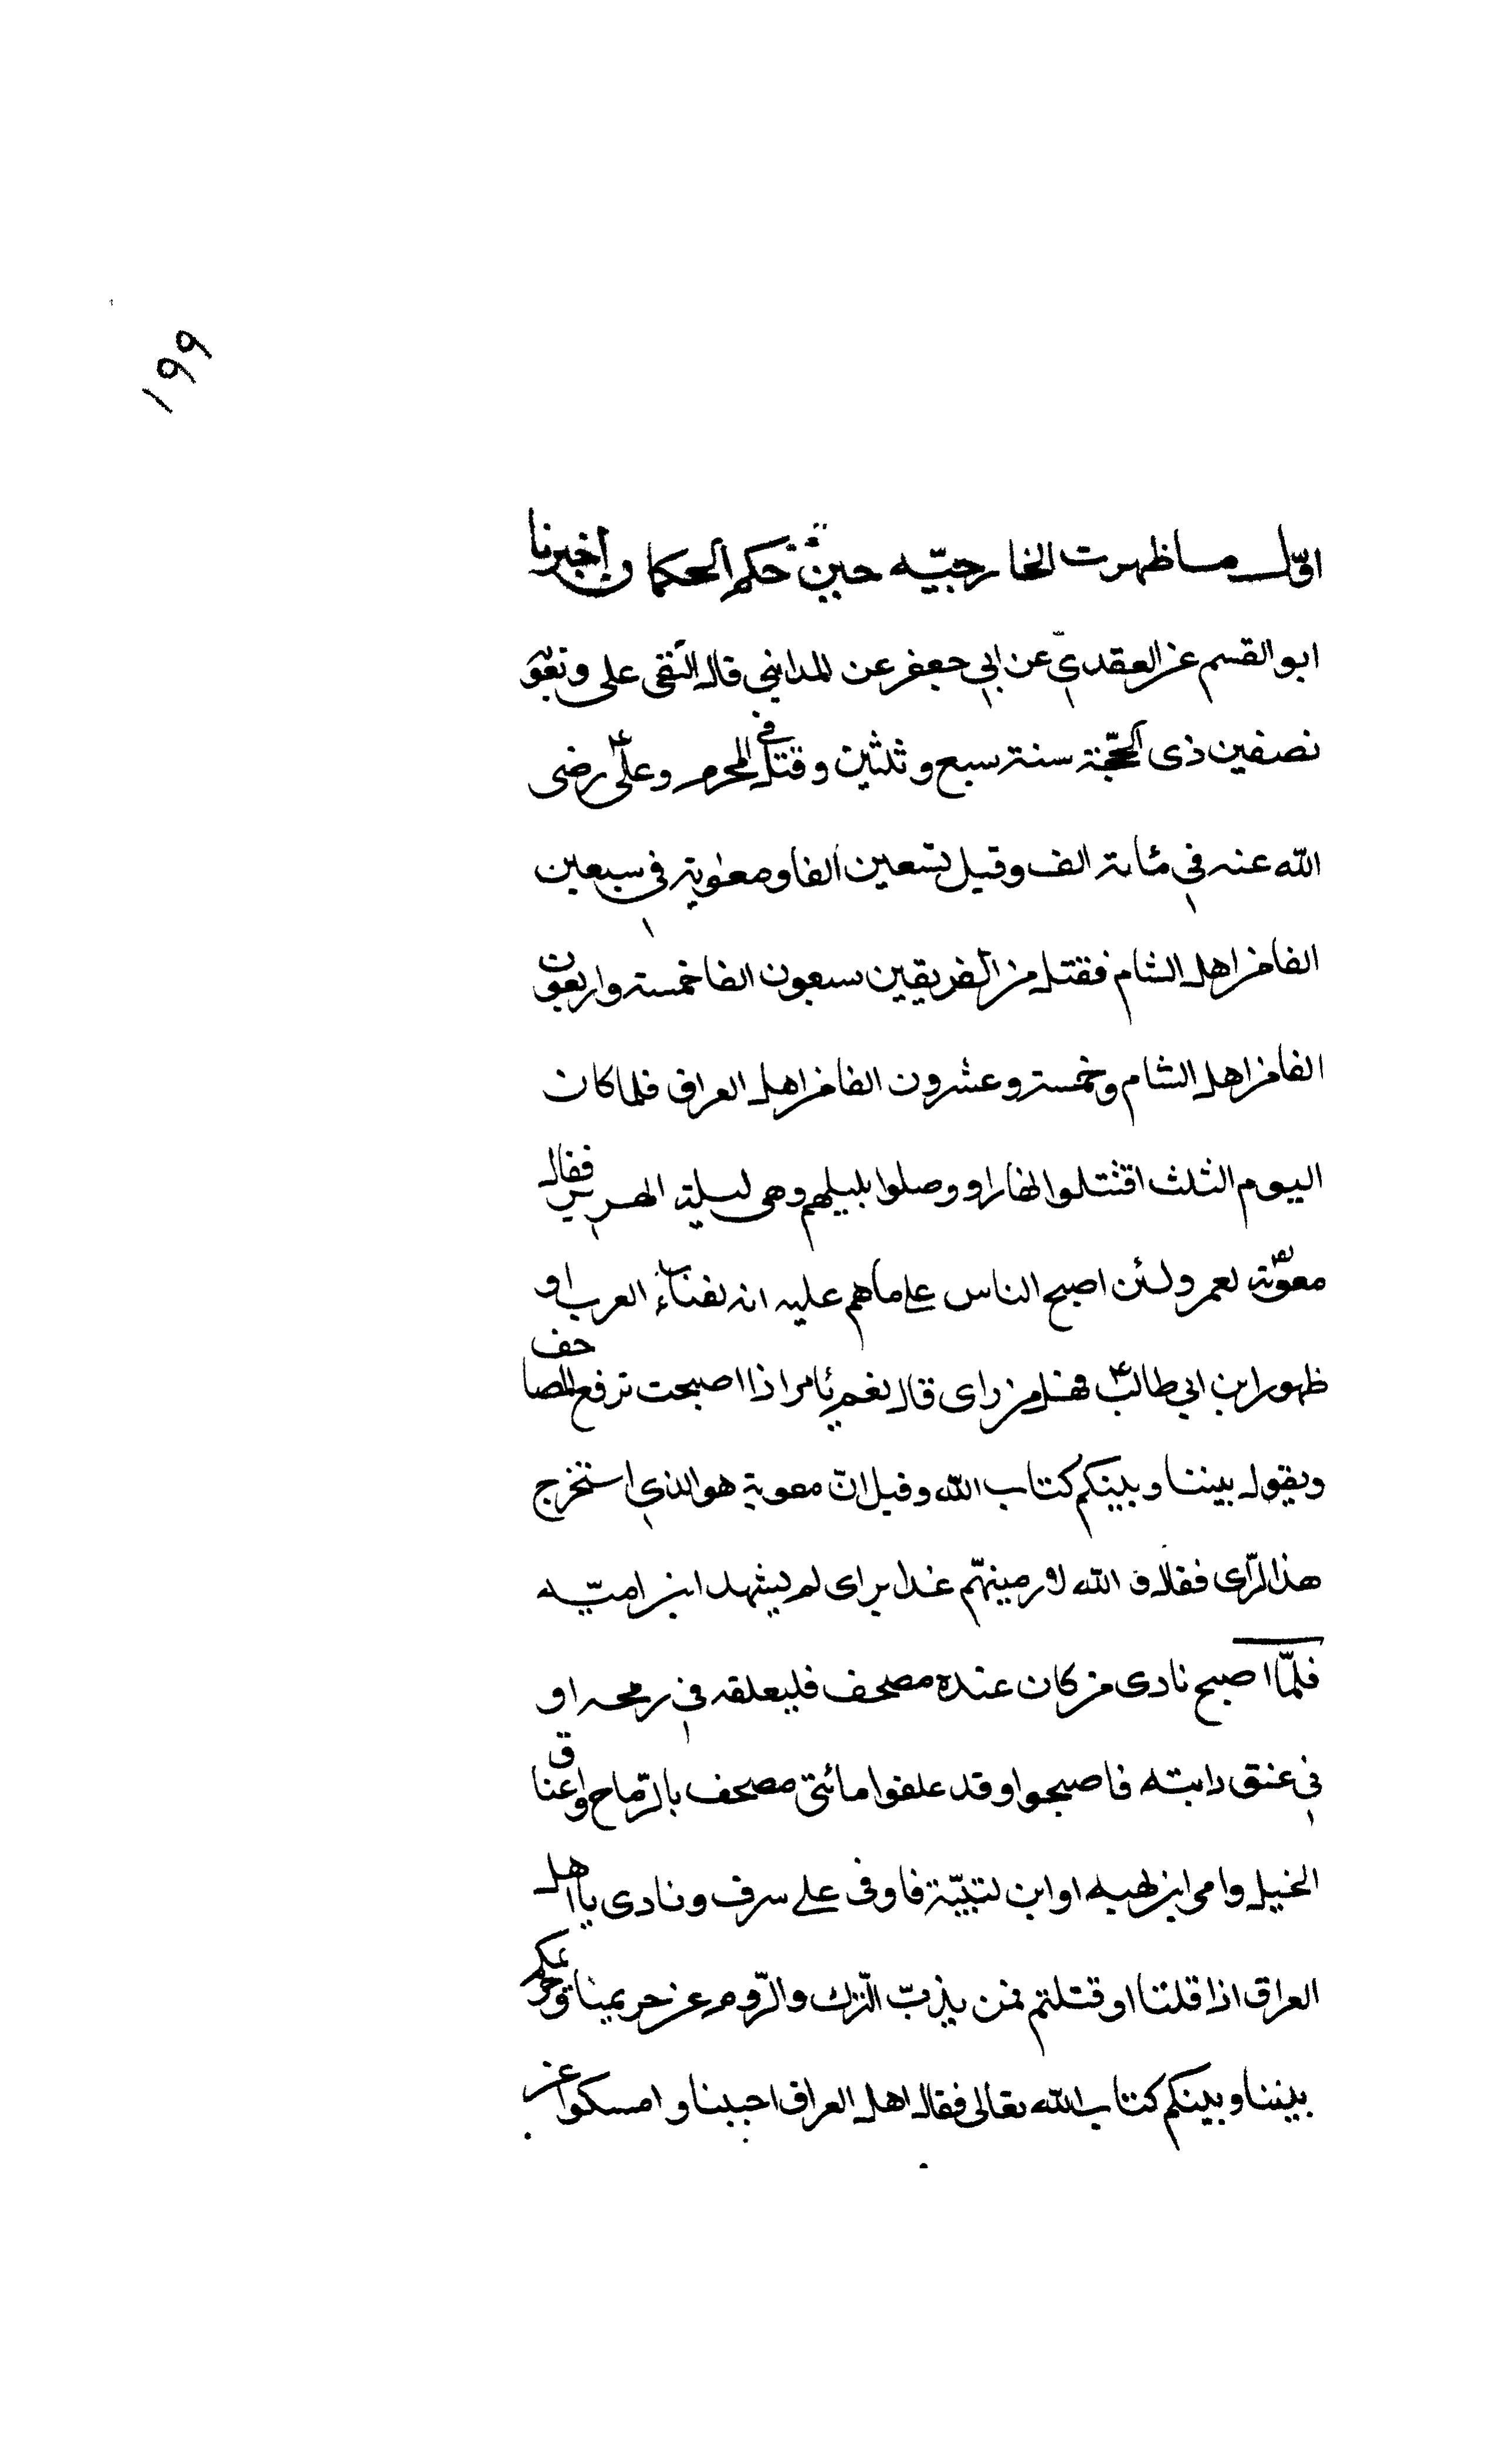 ١٩٩
اوّل ما ظهرت الخارجيّه حين حكم الحكمان اخبرنا
ابو القسم عن العقدي عن ابي جعفر عن المدايني قال التقى على ومعوية
بصفين ذى الحجّة سنة سبع وثلثين وقتل في المحرم وعلىّ رضى
الله عنه في مائة الف وقيل تسعين الفا ومعوية في سبعين
الفا من اهل الشام فقتل من الفريقين سبعون الفا خمسة واربعون
الفا من اهل الشام وخمسة وعشرون الفا من اهل العراق فلما كان
اليوم الثلث اقتتلوا نهارا ووصلوا بليلهم وهى ليلة الهرير فقال
معوية لعمرو لئن اصبح الناس على ماهم عليه انه لفناء العرب او
ظهور ابن ابي طالب فهل من راى قال نعم يأمر اذا اصبحت ترفع المصاحف
ويقول بيننا وبينكم كتاب الله وقيل انّ معوية هو الذي استخرج
هذا الرّاى فقال الله لارمينهّم غدا براى لم يشهد ابن اميّه
فلمّا اصبح نادى من كان عنده مصحف فليعلقه في رمحه او
في عنق دابته فاصبحوا وقد علقوا مائتى مصحف بالرّماح واعناق
الخيل وامر ابن لهيه او ابن لتبيّة فاوفى على سرف ونادى يا اهل
العراق اذا قتلنا او قتلتم فمن يذبّ التّرك والرّوم عن حريمنا وحريمكم
بيننا وبينكم كتاب الله تعالى فقال اهل العراق اجبنا وامسكوا عن